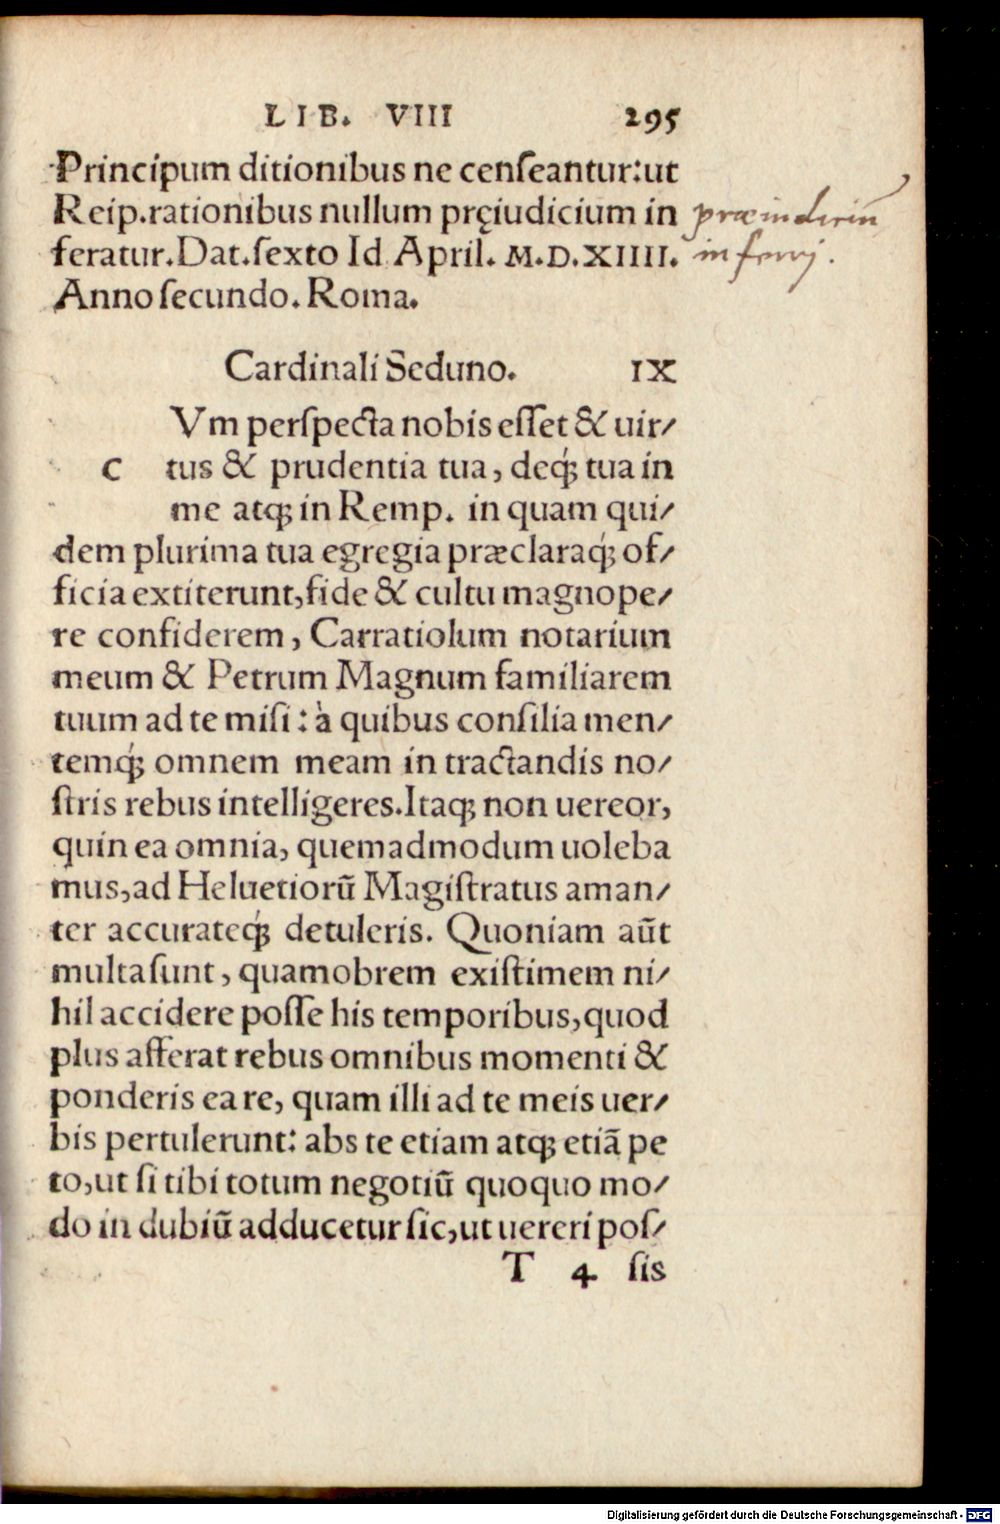 LIB. VIII 295
Principum ditionibus ne censeantur: ut
Reip. rationibus nullum pręiudicium in
feratur. Dat. sexto Id April. M.D.XIIII.
Anno secundo. Roma.
præiudiciũ
inferrj.
Cardinali Seduno. IX
Vm perspecta nobis esset & uir/
C tus & prudentia tua, deq́; tua in
me atq; in Remp. in quam qui/
dem plurima tua egregia præclaraq́; of/
ficia extiterunt, fide & cultu magnope/
re confiderem, Carratiolum notarium
meum & Petrum Magnum familiarem
tuum ad te misi: à quibus consilia men/
temq́; omnem meam in tractandis no/
stris rebus intelligeres. Itaq; non uereor,
quin ea omnia, quemadmodum uoleba
mus, ad Heluetiorũ Magistratus aman/
ter accurateq́; detuleris. Quoniam aũt
multa sunt, quamobrem existimem ni/
hil accidere posse his temporibus, quod
plus afferat rebus omnibus momenti &
ponderis ea re, quam illi ad te meis uer/
bis pertulerunt: abs te etiam atq; etiã pe
to, ut si tibi totum negotiũ quoquo mo/
do in dubiũ adducetur sic, ut uereri pos/
T 4 sis
Digitalisierung gefördert durch die Deutsche Forschungsgemeinschaft - DFG